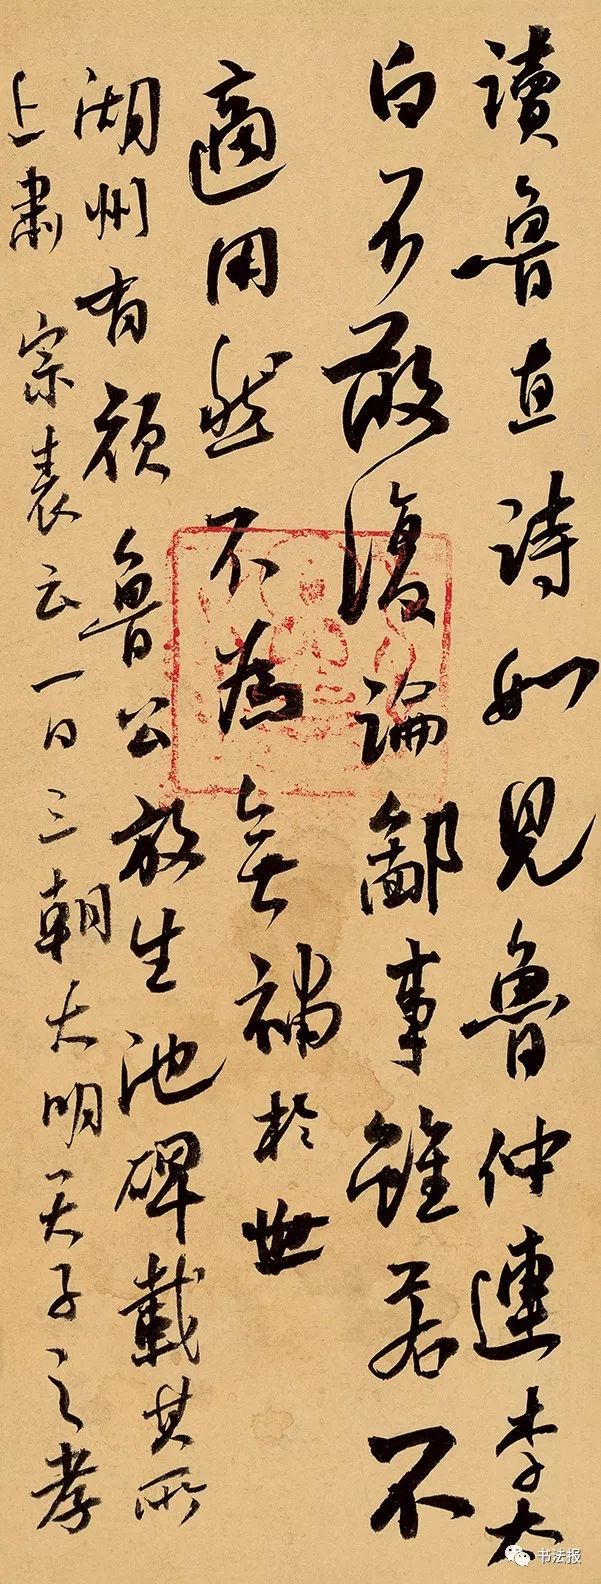 讀魯直詩如見魯仲連李太
白不敢復論鄙事雖若不
適用然不為無補於世
湖州有顏魯公放生池碑載其所
上肅宗表云一日三朝大明天子之孝
书法报